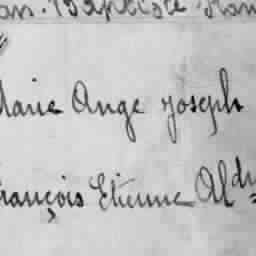 an. Baptiste
Marie Ange Joseph
François Etienne Ald